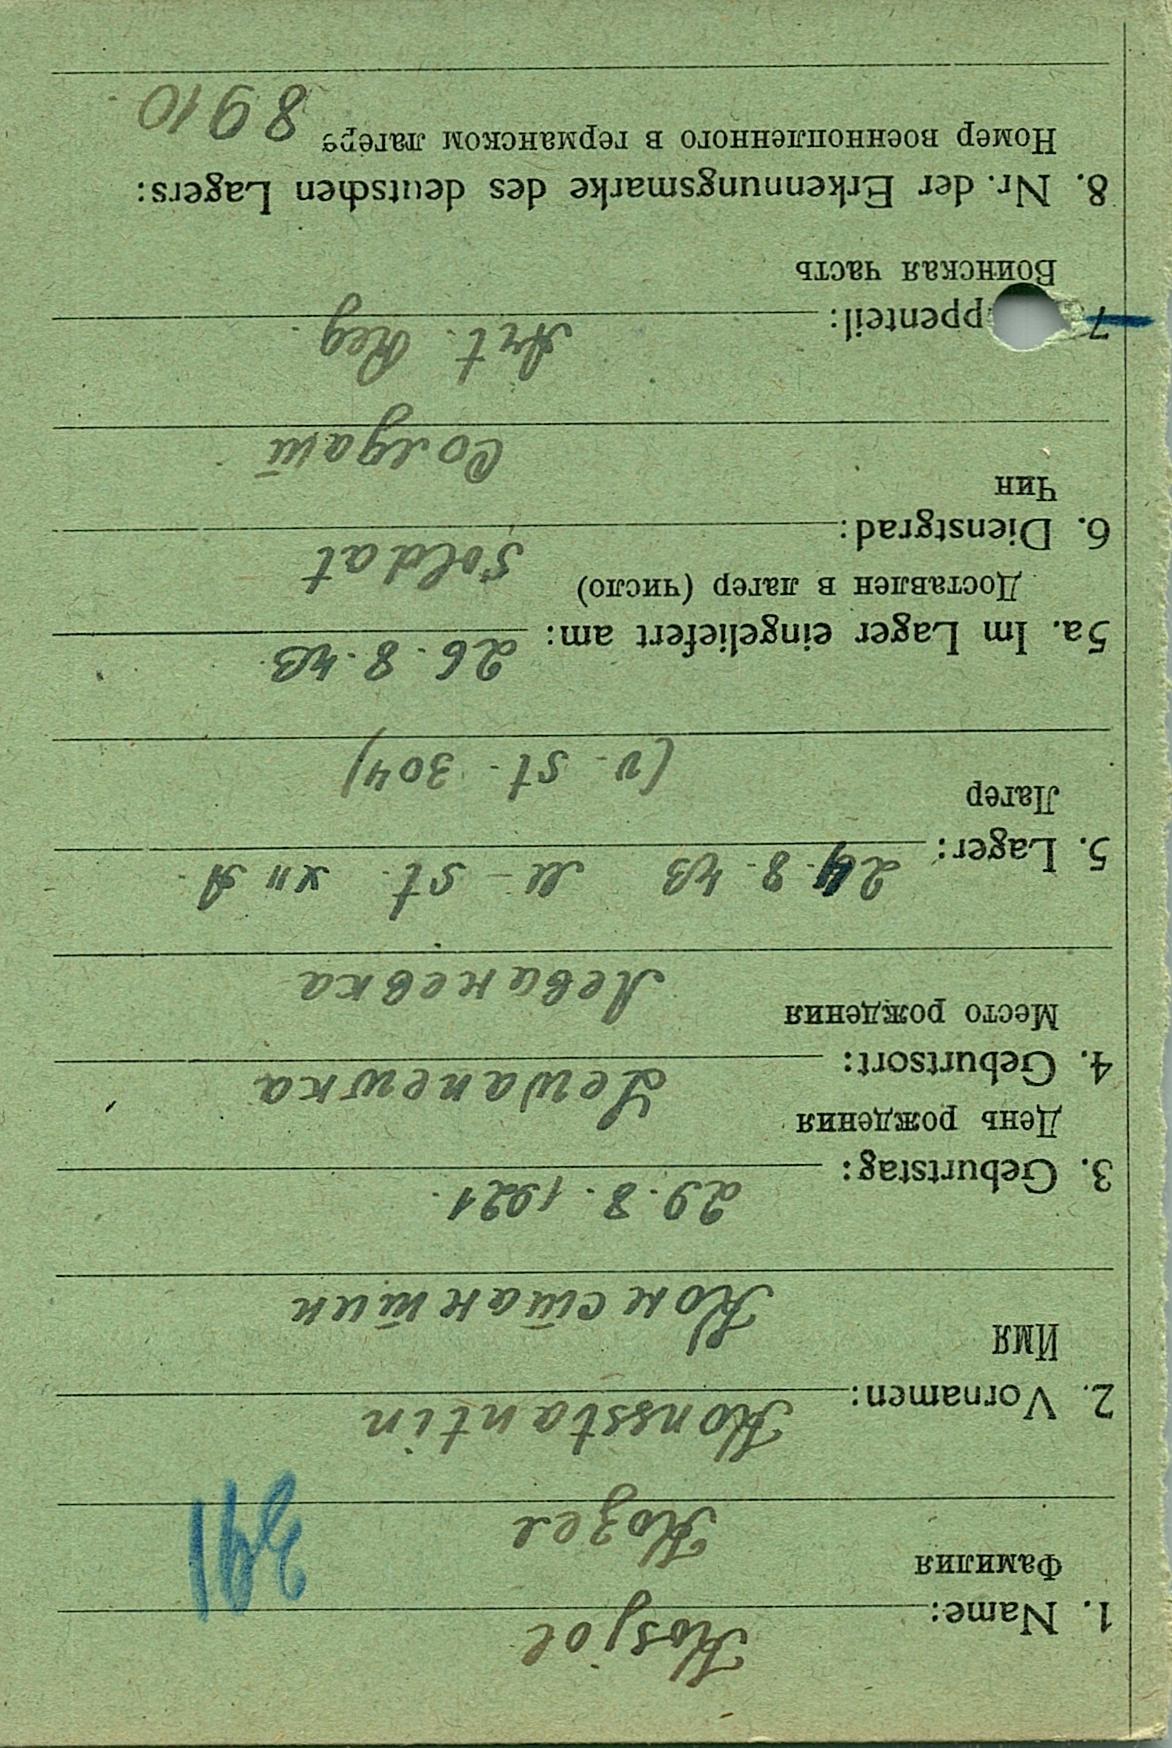 1. Name: Kosjol
Фамилия
Козел
341
2. Vornamen: Konsstantin
Имя
Константин
3. Geburtstag: 29. 8. 1921.
День рождения
4. Geburtsort: Lewanewka
Место рождения
Леваневка
5. Lager: 24. 8. 43 M-St. XII A.
Лагер
(v. St. 304)
5a. Im Lager eingeliefert am: 26. 8. 43.
Доставлен в лагер (число)
6. Dienstgrad: Soldat
Чин
Солдат
7 ppenteil: Art. Reg.
Воинская часть
8. Nr. der Erkennungsmarke des deutschen Lagers:
Номер военнопленного в германском лагере 8910